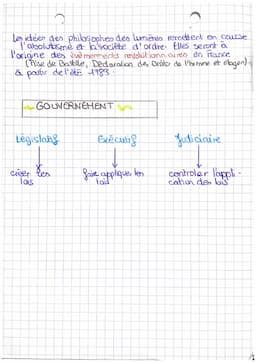 Les idées des philosophes des lumières remettent en cause
l'absolutisme et la société d'ordre. Elles seront à
l'origine des évènements révolutionnaires de France
(Prise de Bastille, Déclaration des Droits de l'homme et citoyen)
à partir de l'été 1789.
GOUVERNEMENT
Législatif Exécutif Judiciaire
créer les faire appliquer les controler l'appli-
lois lois cation des lois